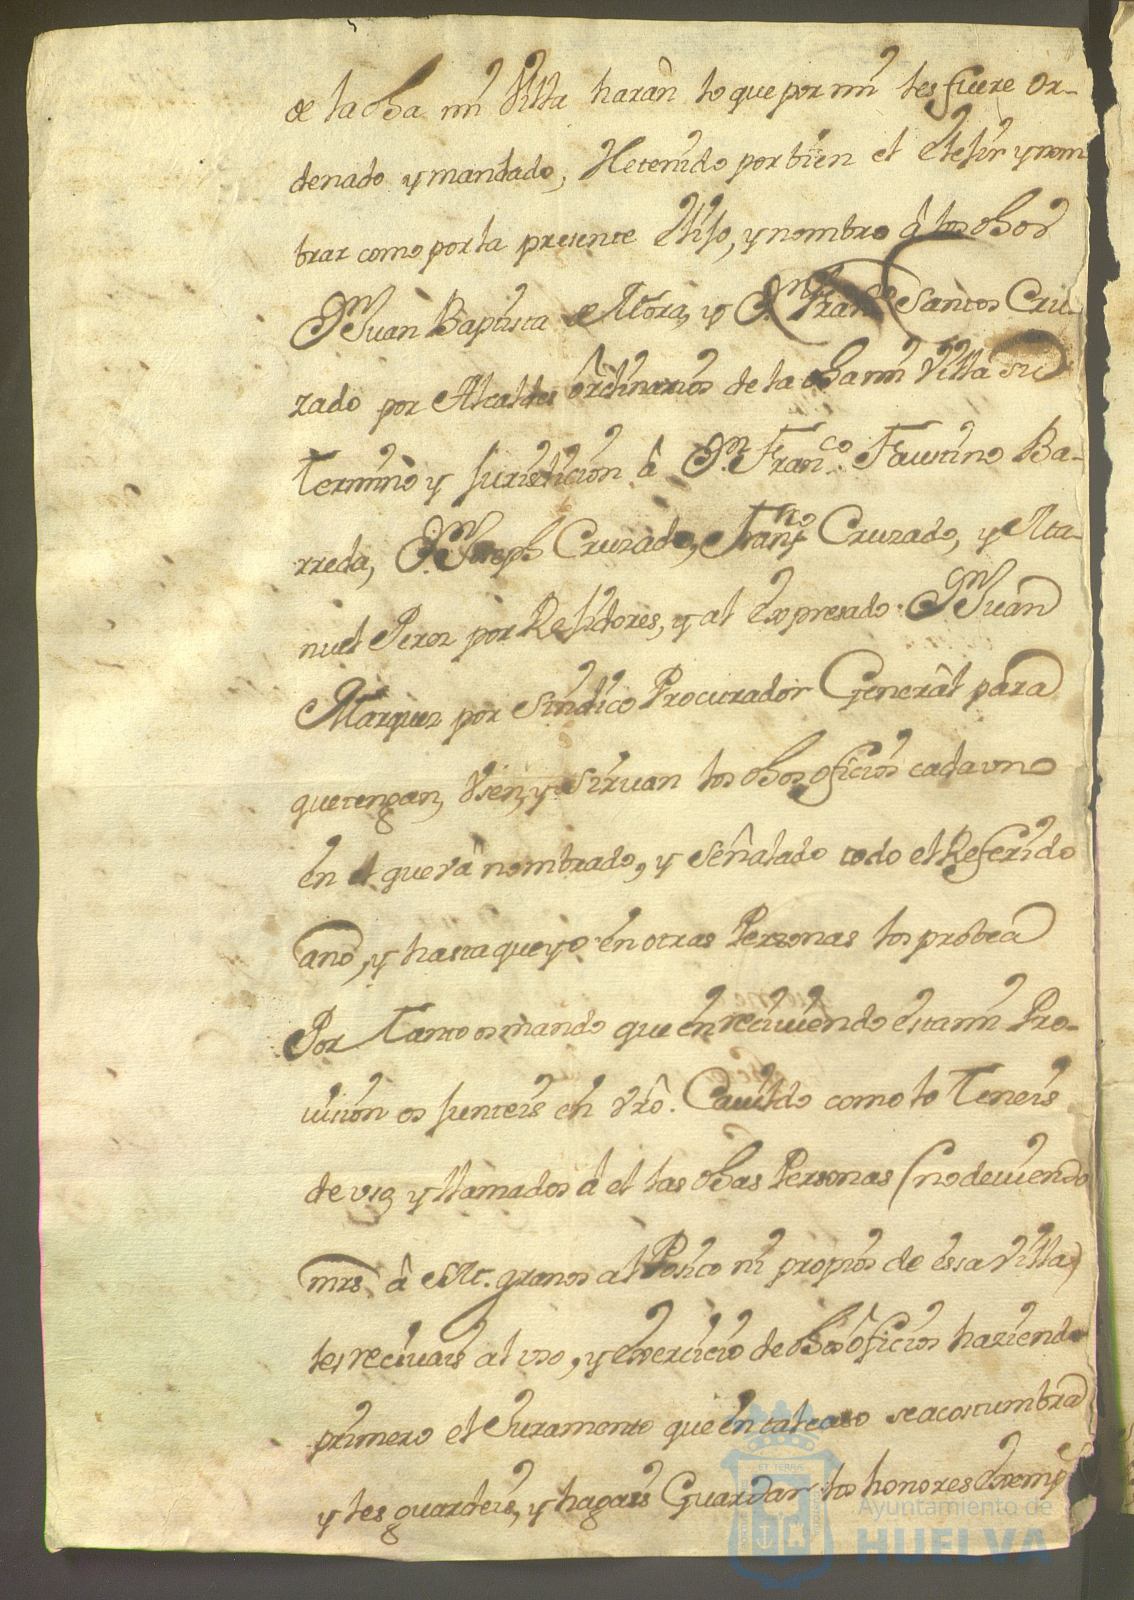 de la dha mi Villa haràn lo que por mi les fuere or-
denado y mandado, He tenido por bien el elejir y nom
brar como por la presente Elijo, y nombro â los dhos
Dn Juan Baptista de Mora, y Dn Franco Santos Cru-
zado por Alcaldes ôrdinarios de la dha mi Villa su
Termino y Jurisdicion â Dn. Franco. Faustino Ba-
rreda, Dn Joseph Cruzado, Franco Cruzado, y Ma-
nuel Perez por Rejidores, y al expresado Dn Juan
Marquez por Sindico Procurador Generâl para
que tengan, Vsen, y Siruan los dhos oficios cada vno
en el que và nombrado, y señalado todo el Referido
año, y hasta que yo en otras Personas los probea
Por Tanto os mando que en reciuiendo esta mi Pro-
uision os junteis en vrô. Cauildo como lo Teneis
de vso, y llamados â el las dhas Personas (no deuiendo
mrs. â Mt. granos al Posito ni propios de essa Villa)
les reciuais al vso, y exercicio de dhos ôficios haziendo
primero el Juramento que en tal caso se acostumbra
y les guardeis, y hagais Guardar los honores exemp
Ayuntamiento de
HUELVA